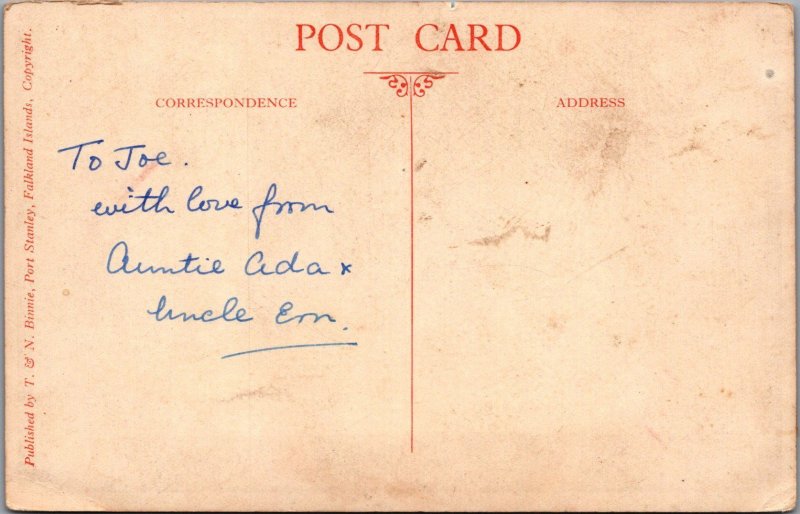 POST CARD
CORRESPONDENCE
ADDRESS
To Joe.
with love from
Auntie Ada x
Uncle Ern.
Published by T. & N. Binnie, Port Stanley, Falkland Islands, Copyright.